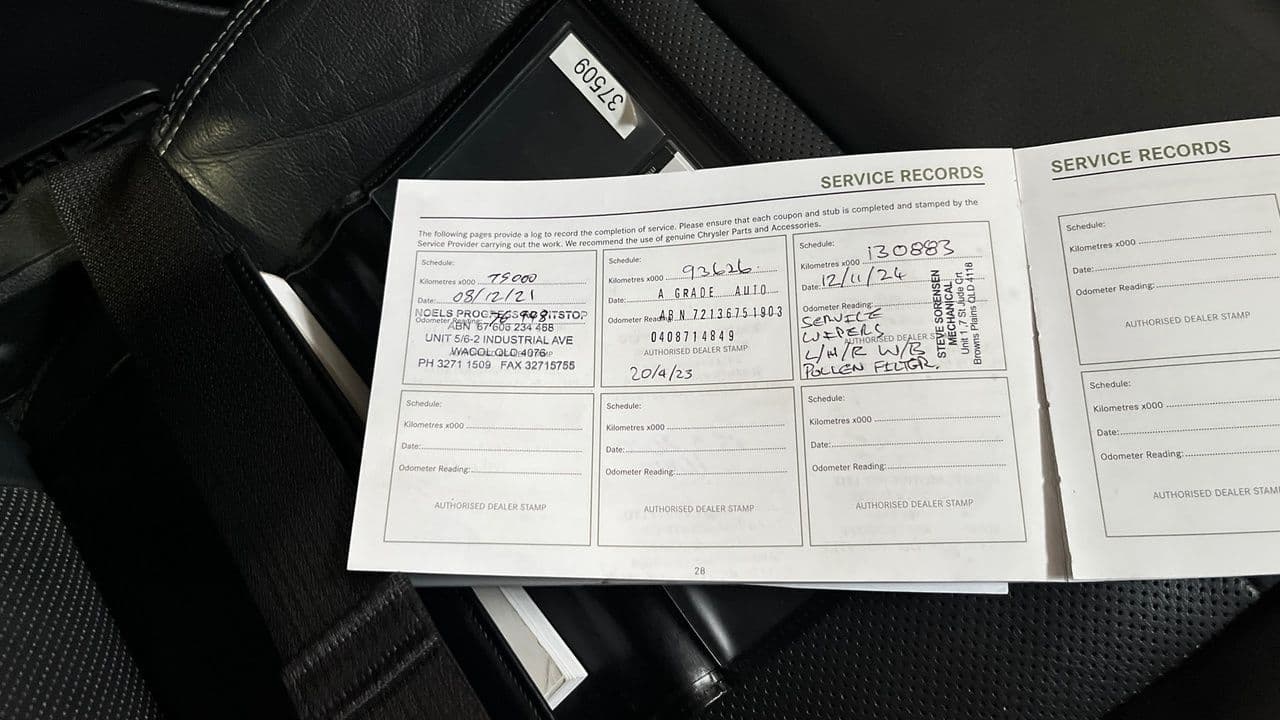 37509
SERVICE RECORDS
The following pages provide a log to record the completion of service. Please ensure that each coupon and stub is completed and stamped by the
Service Provider carrying out the work. We recommend the use of genuine Chrysler Parts and Accessories.
Schedule:
Kilometres x000 75000
Date: 08/12/21
NOELS PITSTOP
Odometer Reading:
ABN 67 606 234 468
UNIT 5/6-2 INDUSTRIAL AVE
WACOL QLD 4076
PH 3271 1509 FAX 32715755
Schedule:
Kilometres x000 93626.
Date: A GRADE AUTO
Odometer Reading: ABN 72136751903
0408714849
AUTHORISED DEALER STAMP
20/4/23
Schedule:
Kilometres x000 130883
Date: 12/11/24
Odometer Reading:
SERVICE
WIPERS
AUTHORISED DEALER
L/H/R W/B
POLLEN FILTER.
STEVE SORENSEN
MECHANICAL
Unit 1, 7 St Jude Crt
Browns Plains QLD 4118
Schedule:
Kilometres x000
Date:
Odometer Reading:
AUTHORISED DEALER STAMP
Schedule:
Kilometres x000
Date:
Odometer Reading:
AUTHORISED DEALER STAMP
Schedule:
Kilometres x000
Date:
Odometer Reading:
AUTHORISED DEALER STAMP
28
SERVICE RECORDS
Schedule:
Kilometres x000
Date:
Odometer Reading:
AUTHORISED DEALER STAMP
Schedule:
Kilometres x000
Date:
Odometer Reading:
AUTHORISED DEALER STAM